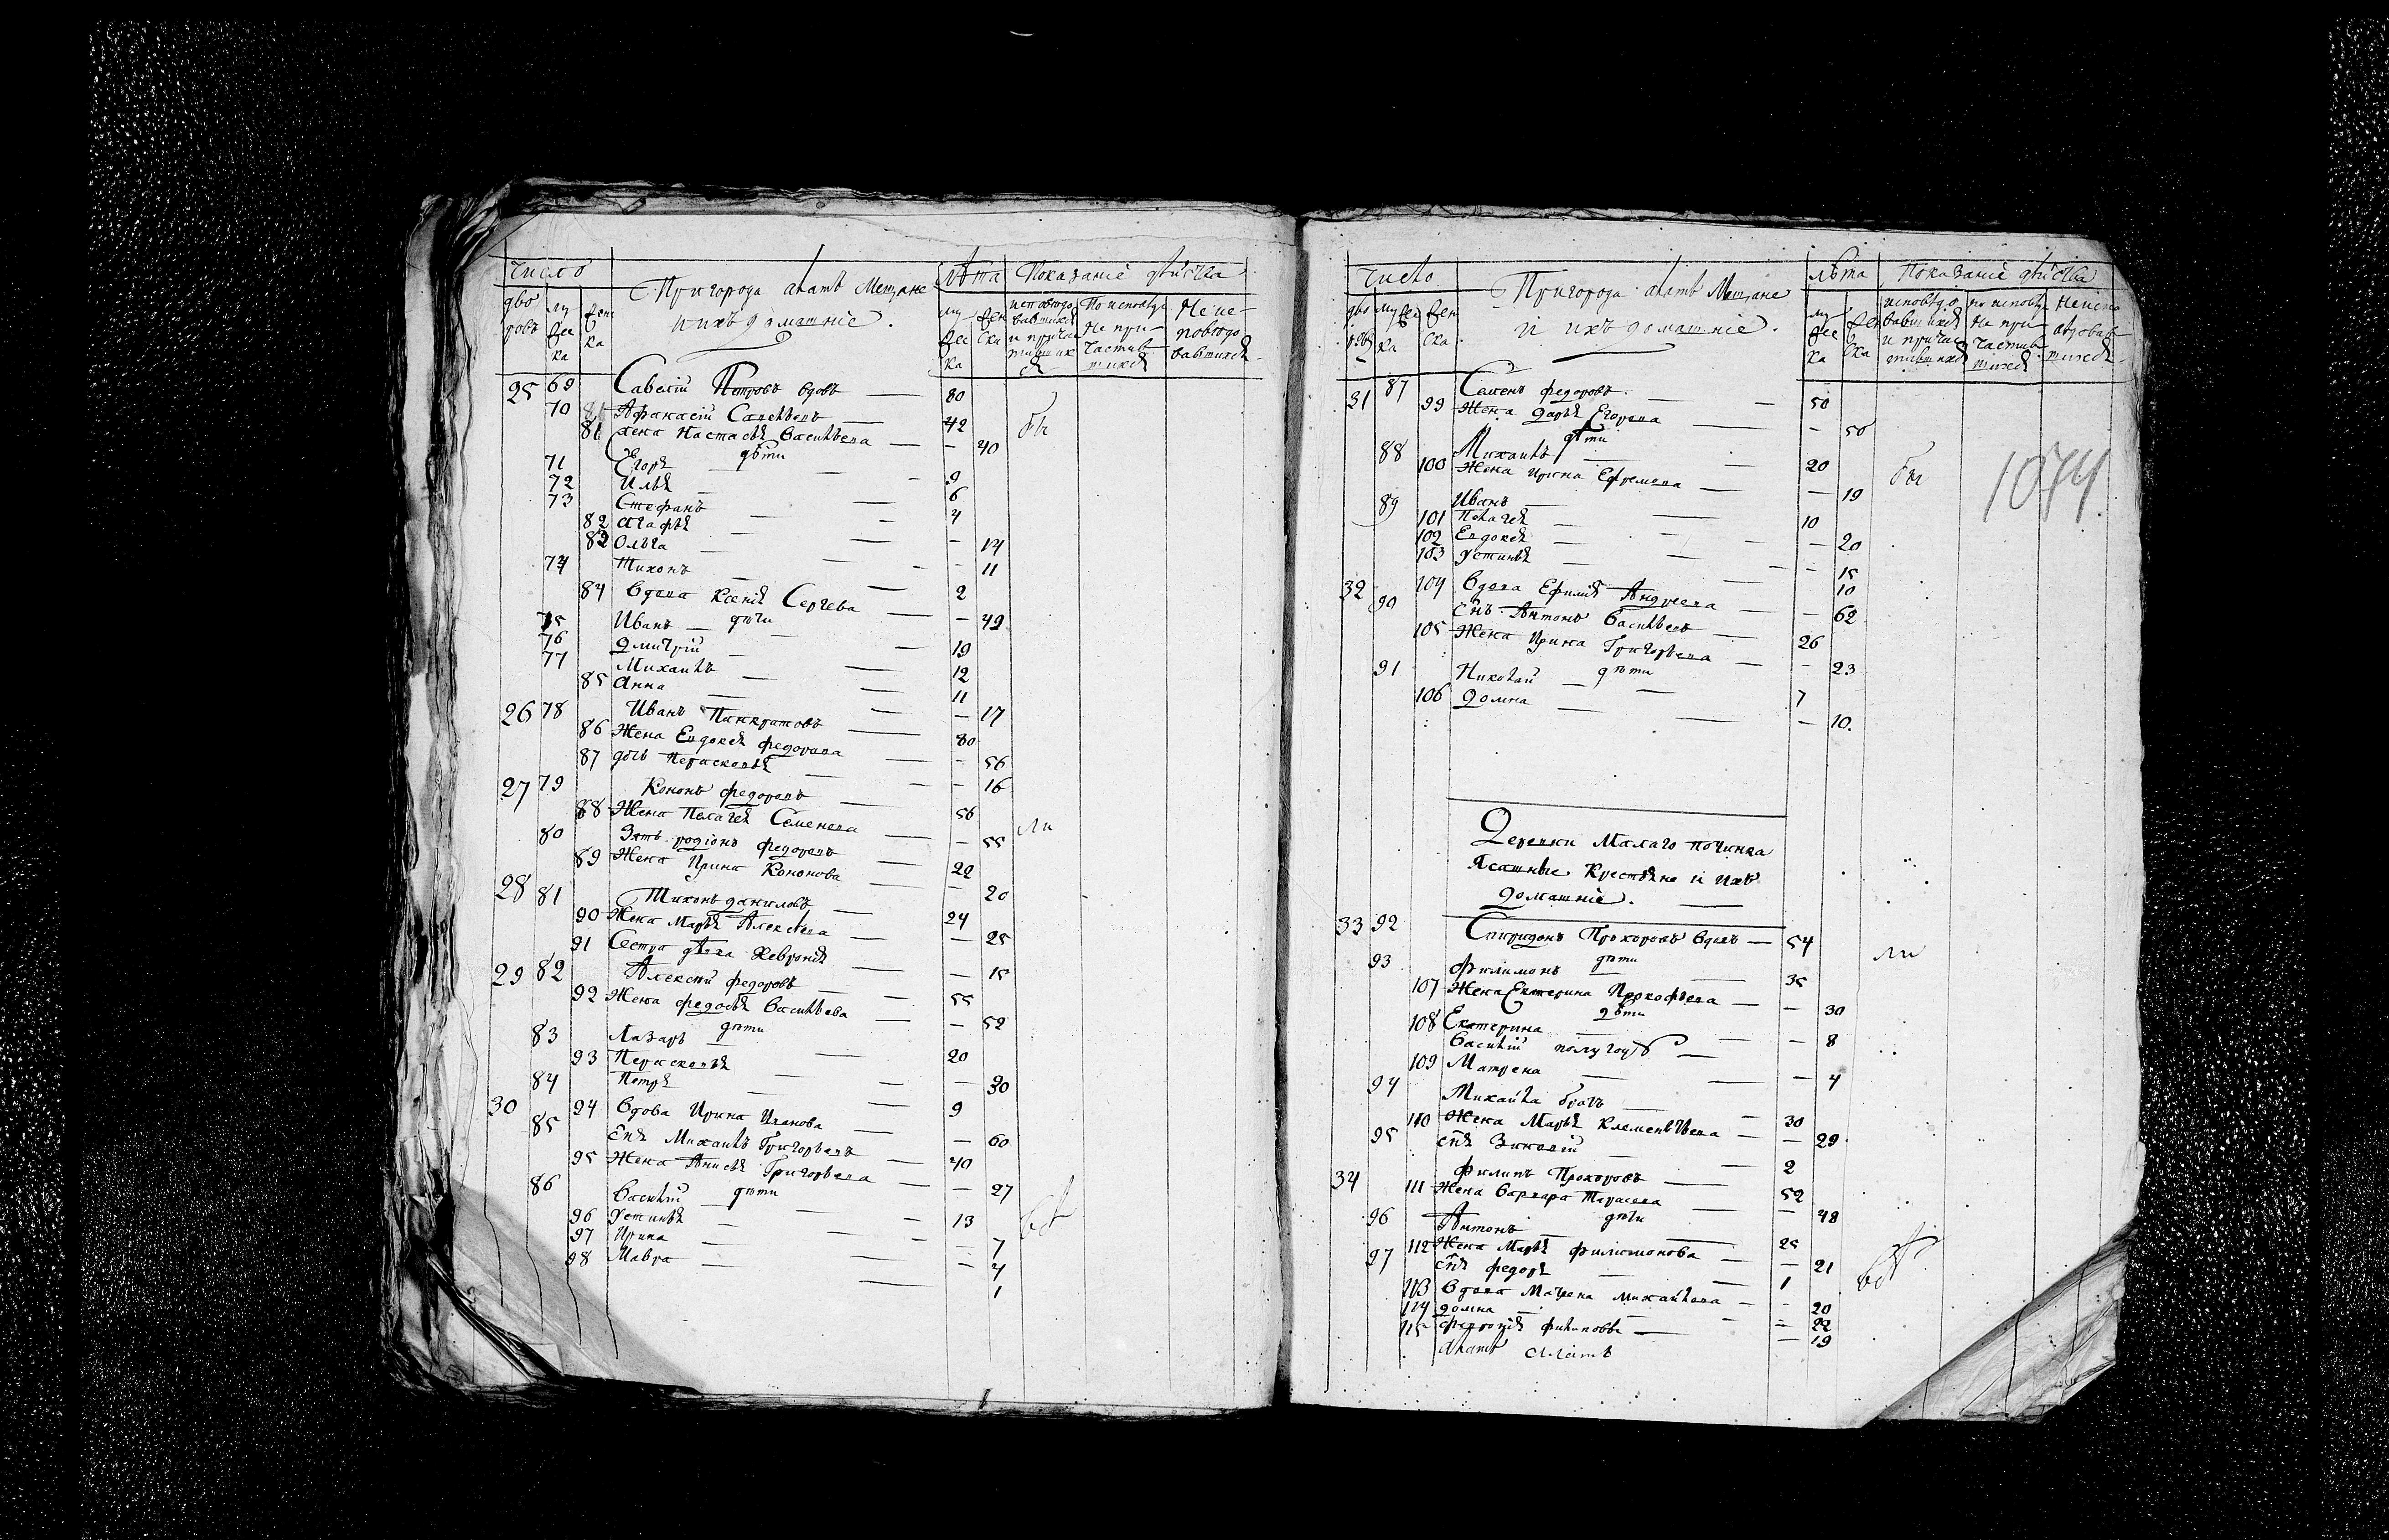 Число Пригорода алатъ Мещане Лѣта Показаніе дѣйства
дво ровъ му жес ка жен ска ихъ домашніе. му жес ка жен ска исповѣдо вавшихся и причас тившихся По исповѣди Не при частив шихся Не ис повѣдо вавшихся
25 69 Савелій Петровъ вдовъ — 80
70 Афанасій Савельевъ 42 бы
81 жена Настасья Васильева — — 40
дѣти
71 Егоръ — 9
72 Илья — 6
73 Стефанъ — 4
82 Агафья — — 14
83 Ольга — — 11
74 Тихонъ — 2
84 Вдова Ксенія Сергева — — 49
дѣти
75 Иванъ — 19
76 Дмитрій — 12
77 Михаилъ — 11
85 Анна — — 17
26 78 Иванъ Панкратовъ — 80
86 Жена Евдокея федорова — — 56
87 дочь Перасковья — — 16
27 79 Кононъ федоровъ — 56
88 Жена Пелагея Семенова — — 55 ли
80 Зять родіонъ федоровъ — 22
89 Жена Ирина Кононова — — 20
28 81 Тихонъ даниловъ — 24
90 Жена Марья Алексѣева — — 25
91 Сестра дѣвка Хевронія — — 15
29 82 Алексѣй федоровъ — 55
92 Жена федосья Васильева — — 52
дѣти
83 Лазарь — 20
93 Перасковья — — 30
84 Петръ — 9
30 94 Вдова Ирина Иванова — — 60
85 Снъ Михаилъ Григорьевъ — 40
95 Жена Анисья Григорьева — — 27
дѣти
86 Василій — 13
96 Устинья — — 7
97 Ирина — — 4
98 Мавра — — 1
Число Пригорода алатъ Мещане Лѣта Показаніе дѣйства
дво ровъ муже ка жен ска и ихъ домашніе. му жес ка жен ска исповѣдо вавшихся и причас тившихся по исповѣ Не при частив шихся Неиспо вѣдовав шихся
31 87 Семенъ федоровъ. — 50
99 Жена Дарья Егорова — — 50
дѣти
88 Михаилъ — 20 бы
100 Жена Ирина Ефремова — — 19
1074
89 Иванъ — 10
101 Пелагея — — 20
102 Евдокея — — 15
103 Устинья — — 10
32 104 Вдова Ефимья Андреева — — 62
90 Снъ Антонъ Васильевъ — 26
105 Жена Ирина Григорьева — — 23
дѣти
91 Николай — 7
106 Домна — — 10.
Деревни Малаго починка
Ясашные Крестьяне и ихъ
Домашніе. —
33 92 Спиридонъ Прохоровъ вдовъ — 54 ли
дѣти
93 Филимонъ — 35
107 Жена Екатерина Прокофьева — — 30
дѣти
108 Екатерина — — 8
Василій полугоду —
109 Матрена — — 4
94 Михайла братъ — 30
110 Жена Марья Клементьева — — 29
95 снъ Зиновій — 2
34 Филипъ Прохоровъ — 52
111 Жена Варвара Тарасева — — 48
дѣти
96 Антонъ — 25
112 Жена Марья филимонова — — 21
97 снъ федоръ — 1
113 Вдова Матрена Михайлова — — 20
114 Домна — — 22
115 Февронія филиповы — — 19